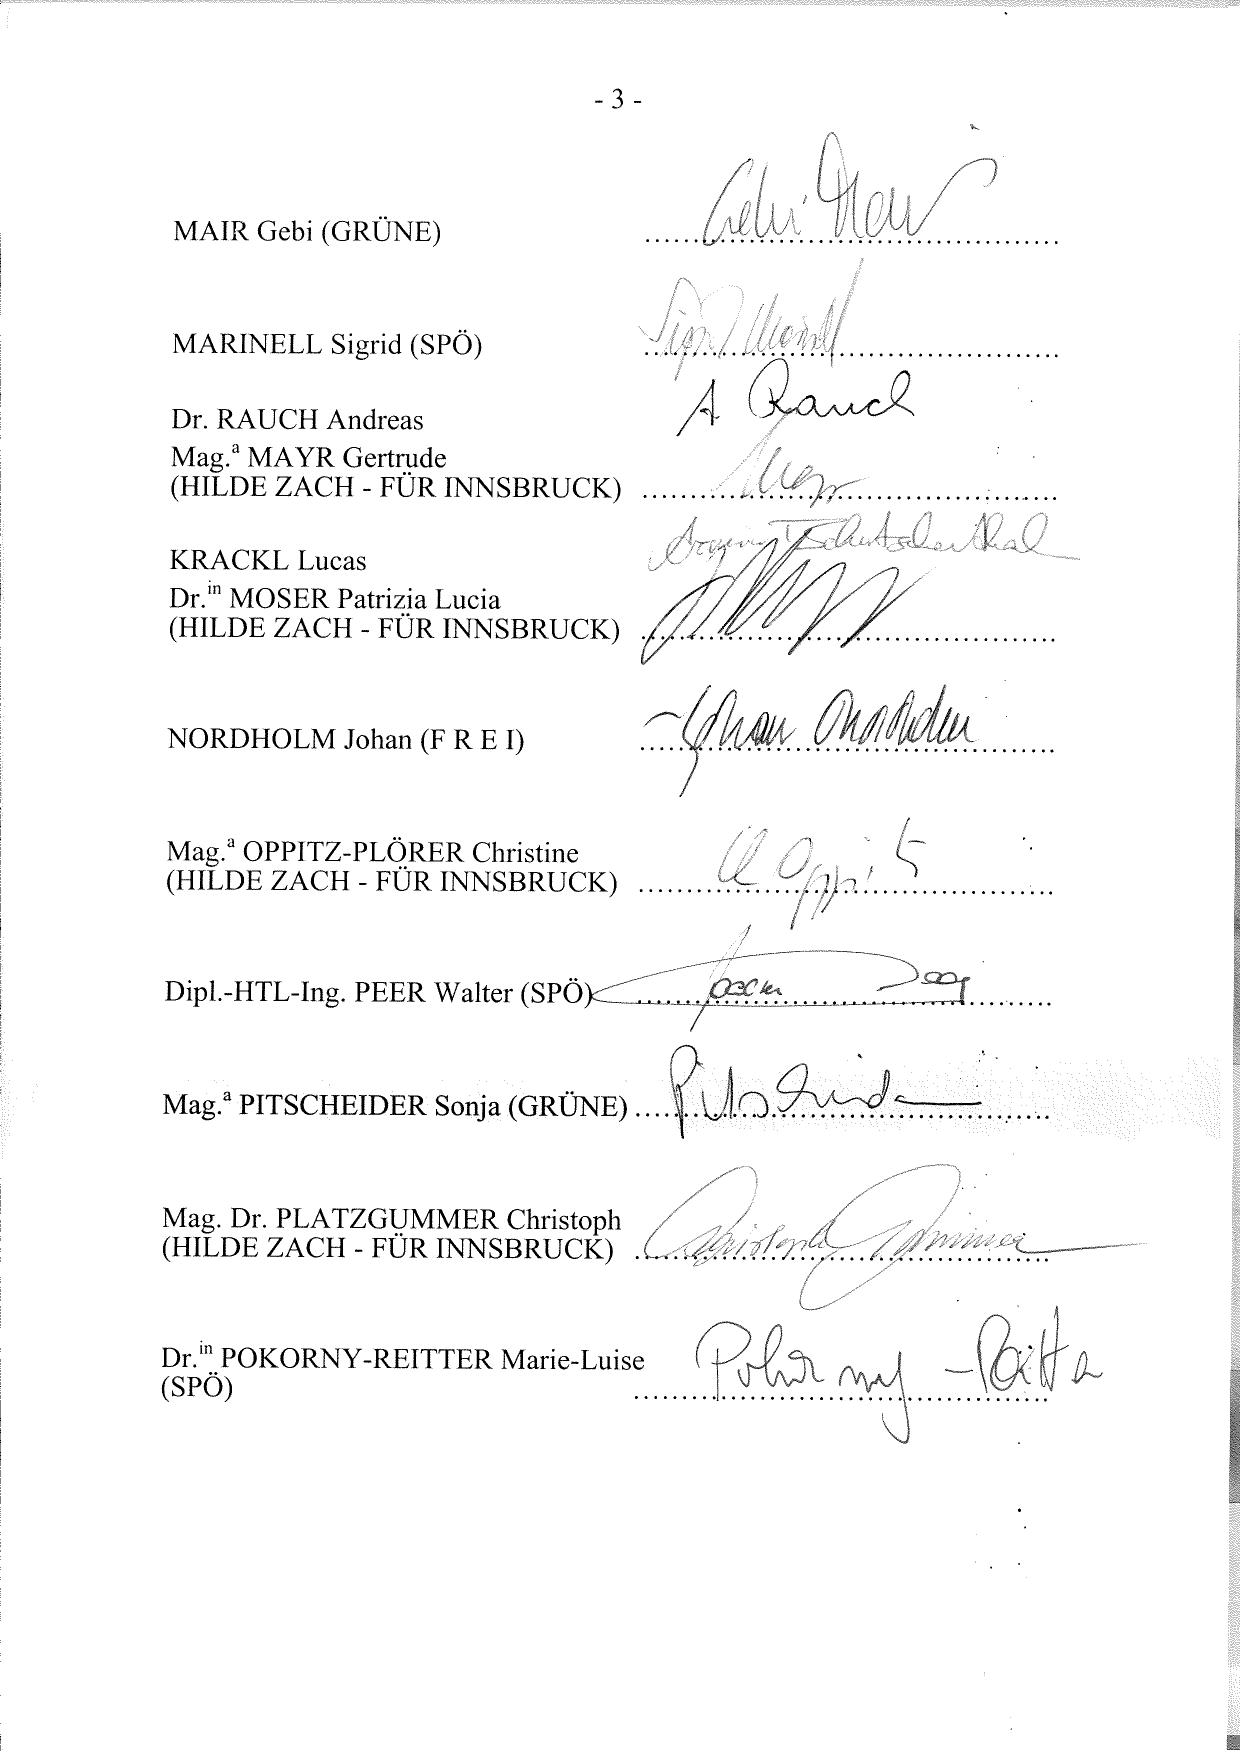 - 3 -
MAIR Gebi (GRÜNE) Gebi Mair
MARINELL Sigrid (SPÖ)
Dr. RAUCH Andreas A Rauch
Mag.ª MAYR Gertrude
(HILDE ZACH - FÜR INNSBRUCK)
KRACKL Lucas
Dr.in MOSER Patrizia Lucia
(HILDE ZACH - FÜR INNSBRUCK)
NORDHOLM Johan (F R E I)
Mag.ª OPPITZ-PLÖRER Christine
(HILDE ZACH - FÜR INNSBRUCK)
Dipl.-HTL-Ing. PEER Walter (SPÖ)
Mag.ª PITSCHEIDER Sonja (GRÜNE)
Mag. Dr. PLATZGUMMER Christoph
(HILDE ZACH - FÜR INNSBRUCK)
Dr.in POKORNY-REITTER Marie-Luise Pokorny-Reitter
(SPÖ)